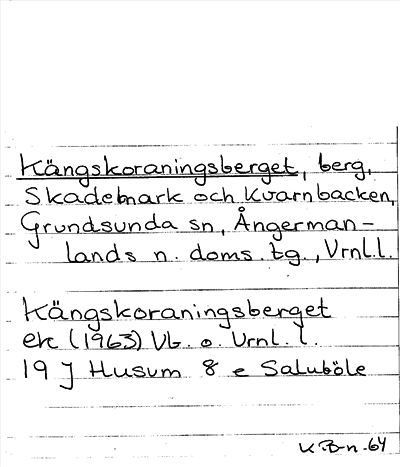 Kängskoraningsberget, berg,
Skademark och Kvarnbacken,
Grundsunda sn, Ångerman-
lands n. doms. tg., Vrnl.l.
Kängskoraningsberget
ek (1963) Vb. o. Vrnl. l.
19 J Husum 8 e Saluböle
K.B-n.-64